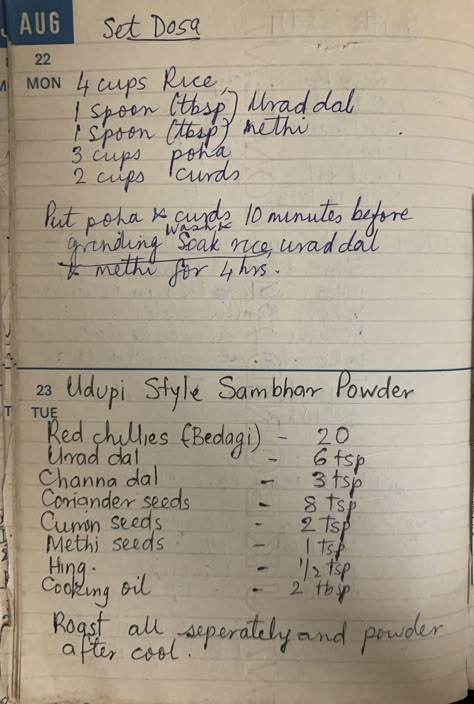 AUG
Set Dosa
22
MON
4 cups Rice,
1 spoon (tbsp) Urad dal
1 spoon (tbsp) methi
3 cups poha
2 cups curds
Put poha & curds 10 minutes before
grinding wash & Soak rice, urad dal
& methi for 4 hrs.
23 Udupi Style Sambhar Powder
TUE
Red chillies (Bedagi) - 20
Urad dal - 6 tsp
Channa dal - 3 tsp
Coriander seeds - 8 tsp
Cumin seeds - 2 tsp
Methi seeds - 1 tsp
Hing. - 1/2 tsp
Cooking oil - 2 tbsp
Roast all seperately and powder
after cool.